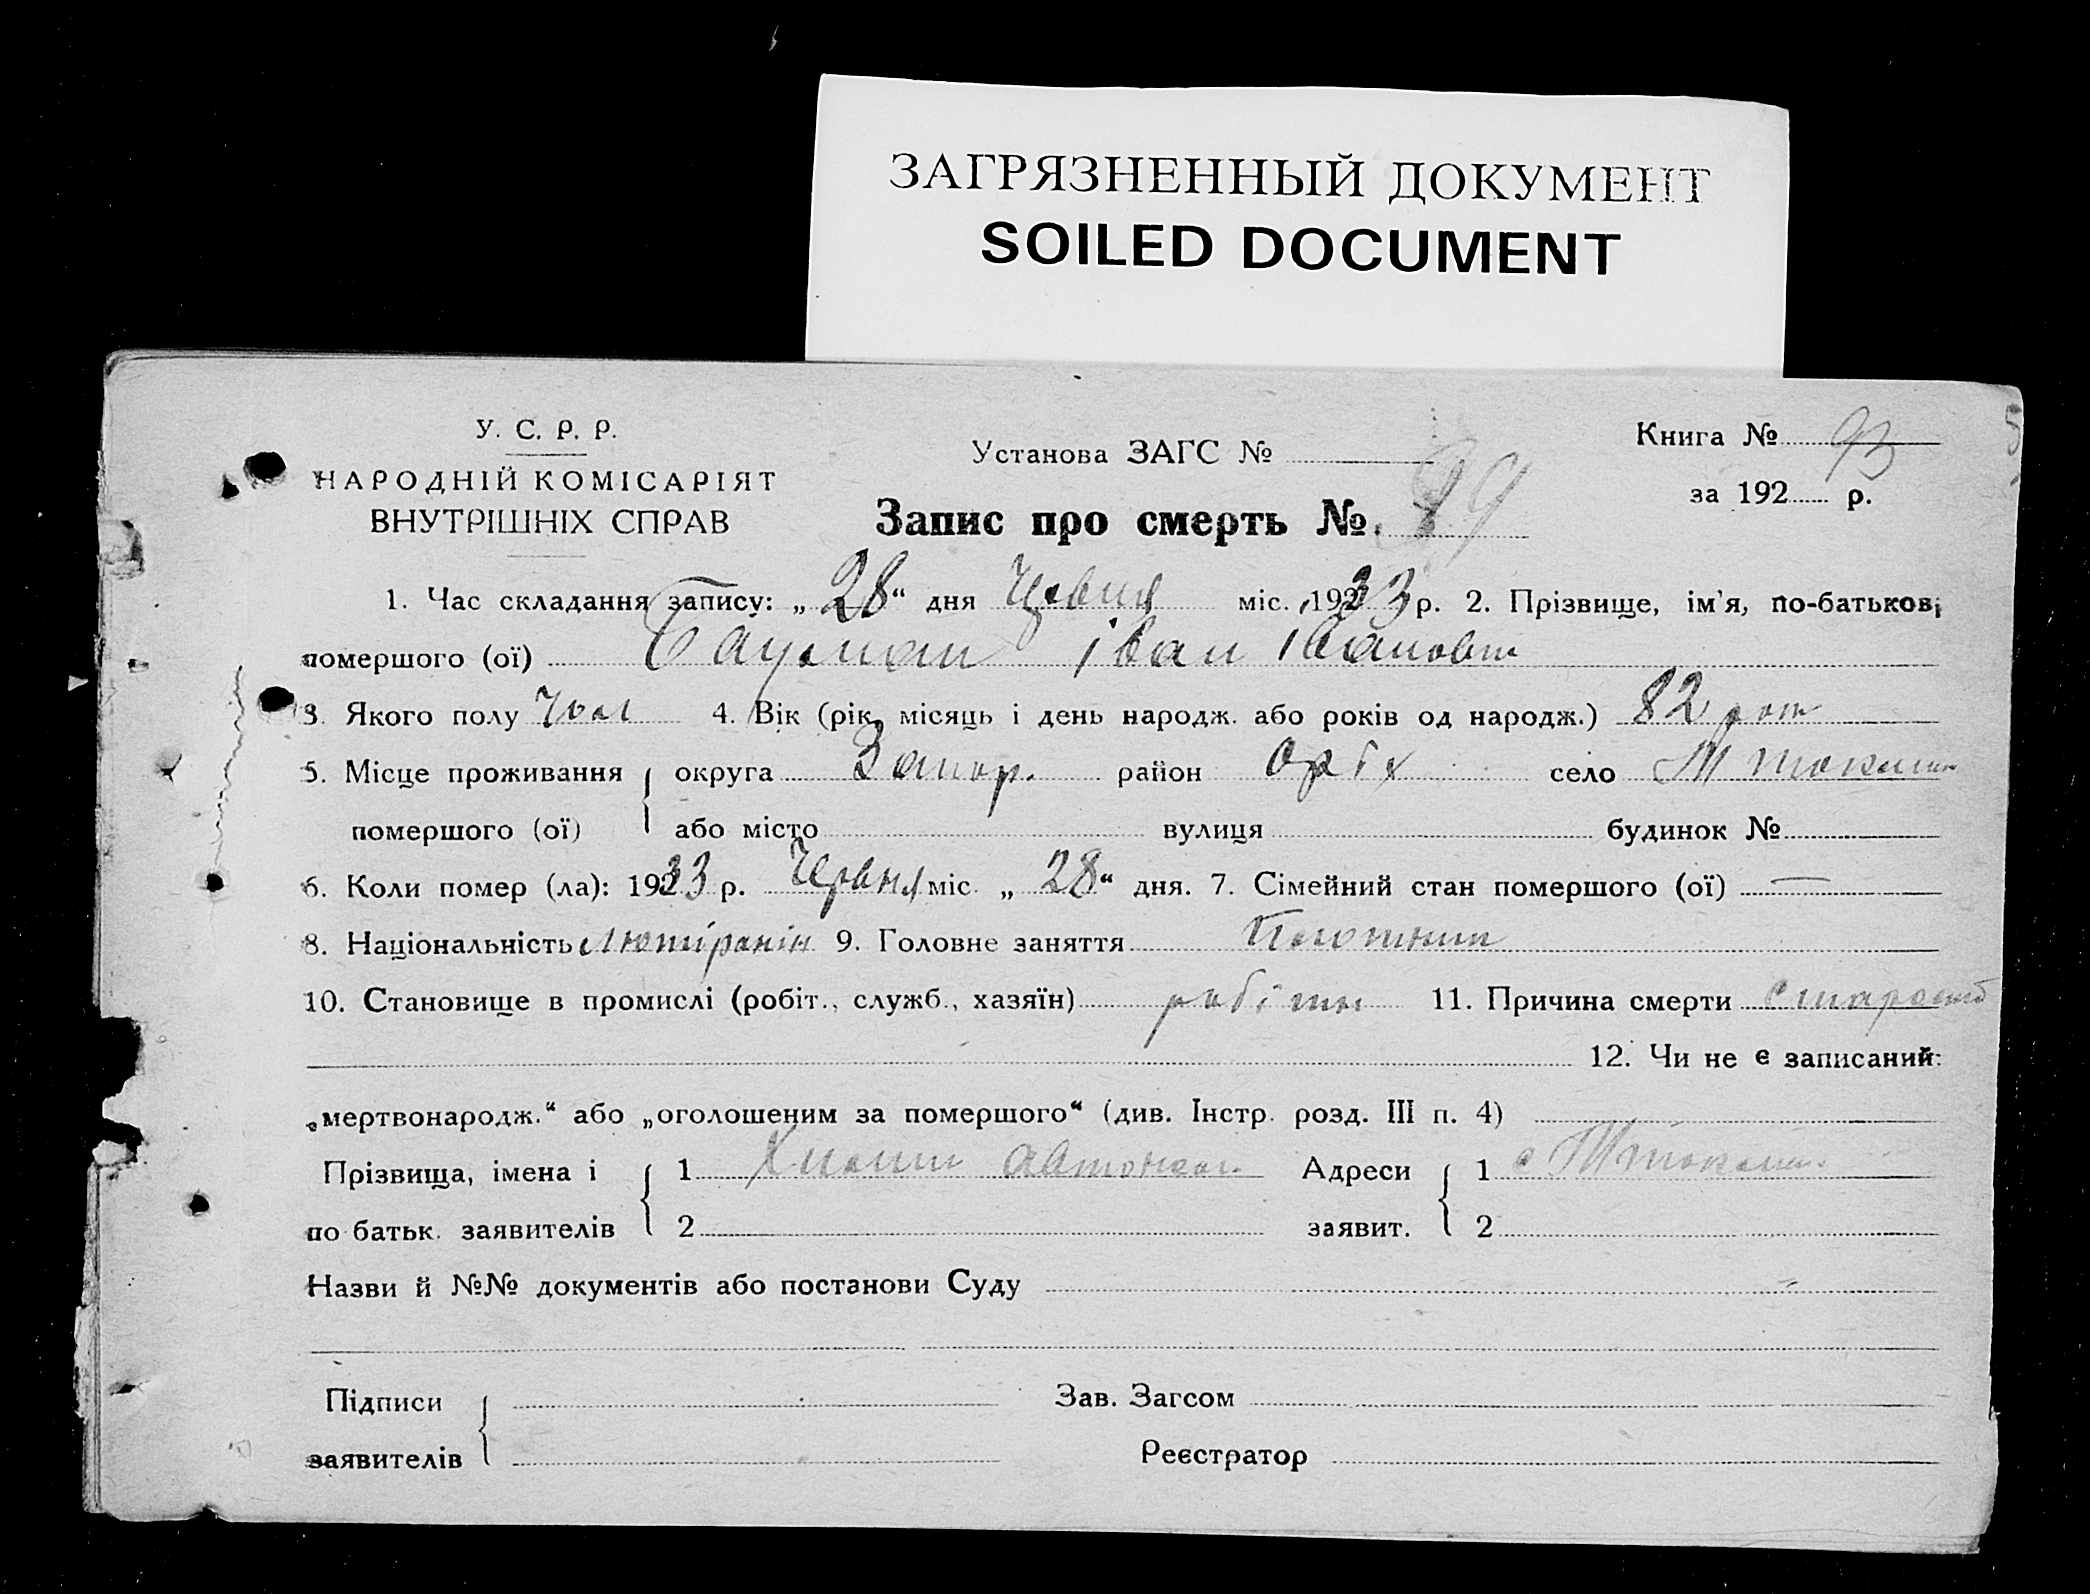 ЗАГРЯЗНЕННЫЙ ДОКУМЕНТ
SOILED DOCUMENT
У. С. Р. Р.
НАРОДНІЙ КОМІСАРІЯТ
ВНУТРІШНІХ СПРАВ
Установа ЗАГС №
Запис про смерть № 89
Книга № 93
за 192 р.
1. Час складання запису: „28“ дня Червня міс. 1933 р. 2. Прізвище, ім'я, по-батькові
помершого (ої) Бауман Іван Іванович
3. Якого полу Чол 4. Вік (рік, місяць і день народж. або років од народж.) 82 рот
5. Місце проживання округа Запор. район Оріх село
помершого (ої) або місто вулиця будинок №
6. Коли помер (ла): 1933 р. Червня міс. „28“ дня. 7. Сімейний стан помершого (ої) —
8. Національність Лютіранін 9. Головне заняття
10. Становище в промислі (робіт., служб., хазяїн) 11. Причина смерти
12. Чи не є записаний:
„мертвонародж.“ або „оголошеним за помершого“ (див. Інстр. розд. III п. 4)
Прізвища, імена і 1 Адреси 1 с
по батьк. заявителів 2 заявит. 2
Назви й №№ документів або постанови Суду
Підписи Зав. Загсом
заявителів Реєстратор